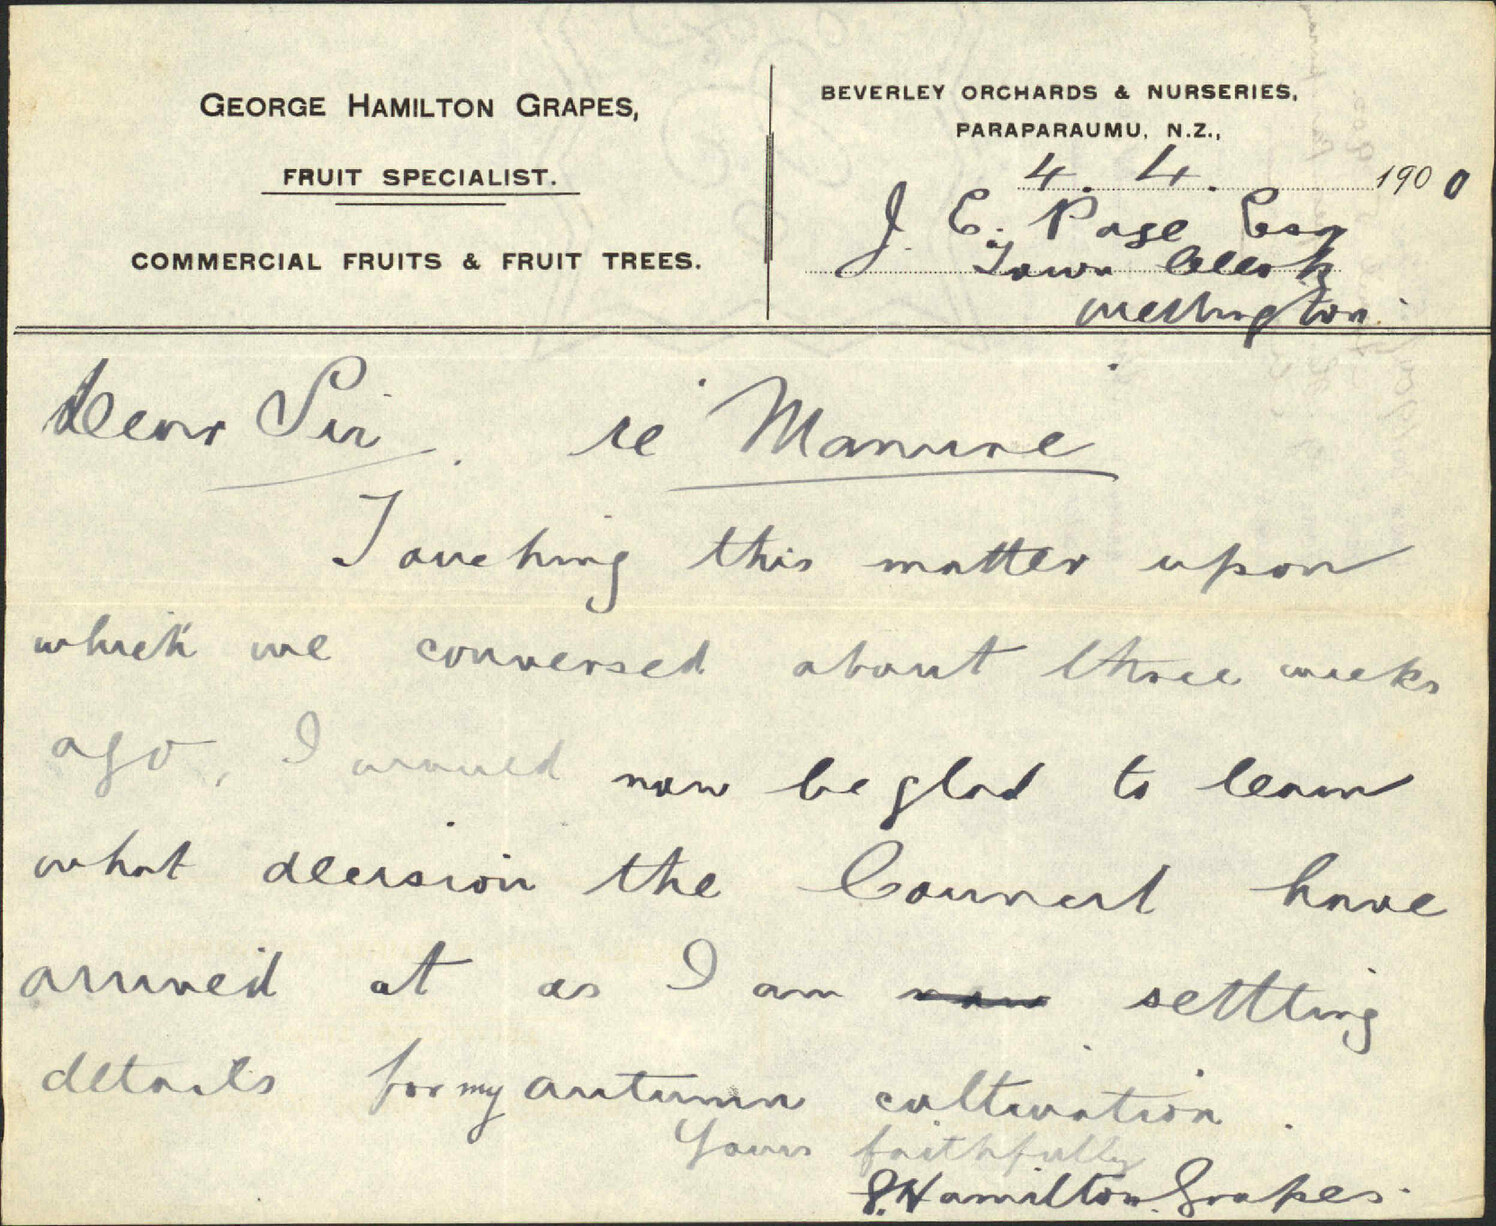 GEORGE HAMILTON GRAPES,
FRUIT SPECIALIST.
COMMERCIAL FRUITS & FRUIT TREES.
BEVERLEY ORCHARDS & NURSERIES,
PARAPARAUMU, N.Z.,
4. 4. 1900
J. E. Page Esq
Town Clerk
Wellington.
Dear Sir. re Manure
Touching this matter upon
which we conversed about three weeks
ago, I would now be glad to learn
what decision the Council have
arrived at as I am now settling
details for my autumn cultivation.
Yours faithfully
G. Hamilton Grapes.